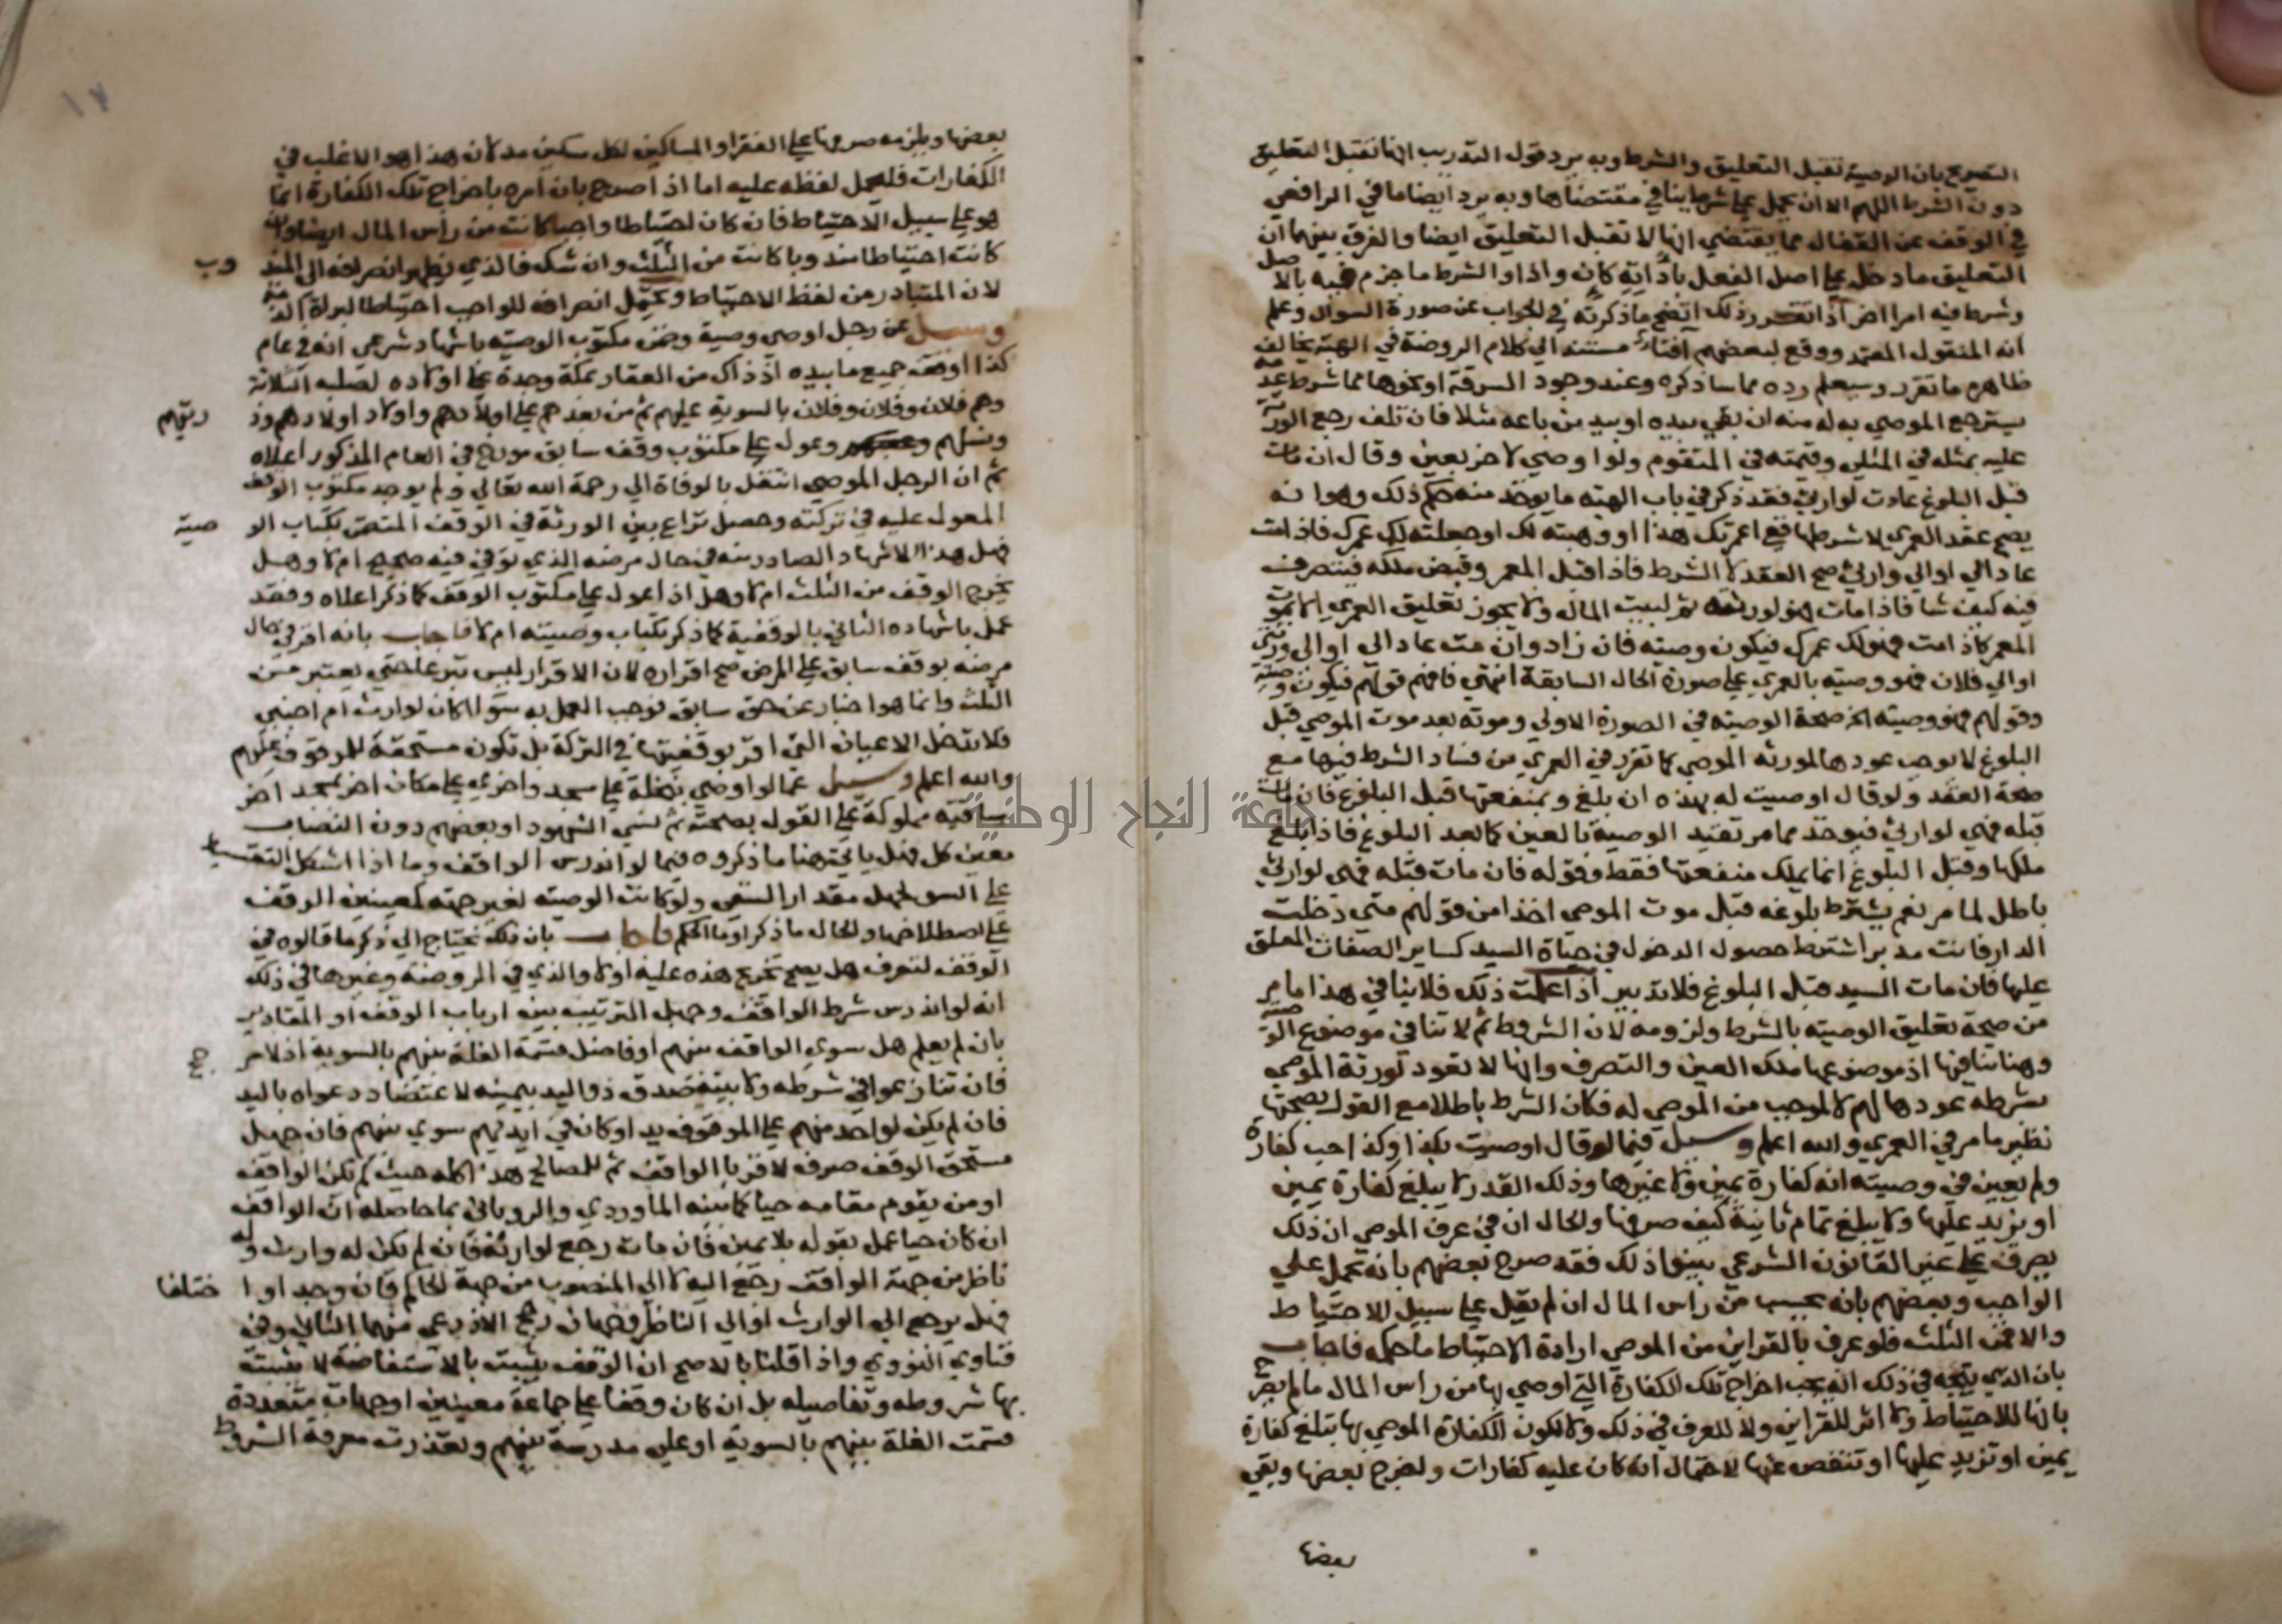 التصريح بان الوصية تقبل التعليق والشرط وبه يرد قول التدريب انها تقبل التعليق
دون الشرط اللهم الا ان يحمل على شرط ينافي مقتضاها وبه يرد ايضا ما في الرافعي
في الوقف عن القفال مما يقتضي انها لا تقبل التعليق ايضا والفرق بينهما ان
التعليق ما دخل على اصل الفعل باداته كان واذا والشرط ما جزم فيه بالاصل
وشرط فيه امرا اخر اذا تقرر ذلك اتضح ما ذكرته في الجواب عن صورة السوال وعلم
انه المنقول المعتمد ووقع لبعضهم افتاء مستند الي كلام الروضة في الهبة يخالف
ظاهره ما تقرر وسيعلم رده مما ساذكره وعند وجود السرقة او نحوها مما شرط عدمه
يسترجع الموصي به له منه ان بقي بيده او بيد من باعه مثلا فان تلف رجع الورثة
عليه بمثله في المثلي وقيمته في المتقوم ولو اوصي لاخر بعين وقال ان مات
قبل البلوغ عادت لوارثي فقد ذكر في باب الهبة ما يوخذ منه حكم ذلك وهو انه
يصح عقد العمري لا شرطها فيع اعمرتك هذا او وهبته لك او جعلته لك عمرك فاذا مت
عاد الي او الي وارثي صح العقد لا الشرط فاذا قبل المعمر وقبض ملكه فيتصرف
فيه كيف شا فاذا مات فهو لورثته ثم لبيت المال ولا يجوز تعليق العمري الا بموت
المعمر كاذا مت فهو لك عمرك فيكون وصيته فان زاد وان مت عاد الي او الي ورثتي
او الي فلان فهو وصيته بالعمري علي صورة الحال السابقة انتهي فافهم قولهم فيكون وصيته
وقولهم فهو وصيته الخ صحة الوصية في الصورة الاولي وموته بعد موت الموصي قبل
البلوغ لا يوجب عودها لورثه الموصي كما تقرر في العمري من فساد الشرط فيها مع
صحة العقد ولو قال اوصيت له بهذه ان بلغ وبمنفعتها قبل البلوغ فان مات
قبله فهي لوارثي فيوخذ مما مر تقيد الوصية بالعين كما بعد البلوغ فاذا بلغ
ملكها وقبل البلوغ انما يملك منفعتها فقط وقوله فان مات قبله فهي لوارثي
باطل لما مر نعم يشترط بلوغه قبل موت الموصي اخذا من قولهم متي دخلت
الدار فانت مدبر اشترط حصول الدخول في حياة السيد كساير الصفات المعلق
عليها فان مات السيد قبل البلوغ فلا تدبير اذا علمت ذلك فلا ينافي هذا ما مر
من صحة تعليق الوصية بالشرط ولزومه لان الشروط ثم لا تنافي موضوع الوصية
وهنا تنافيها اذ موضوعها ملك العين والتصرف وانها لا تعود لورثة الموصي
بشرطه عودها لهم لا لموجب من الموصي له فكان الشرط باطلا مع القول بصحتها
نظير ما مر في العمري والله اعلم وسيل فيما لو قال اوصيت بكذا وكذا حب كفارة
ولم يعين في وصيته انه كفارة يمين ولا غيرها وذلك القدر لا يبلغ كفارة يمين
او يزيد عليها ولا يبلغ تمام ثانية كيف صرفها والحال ان في عرف الموصي ان ذلك
يصرف علي غير القانون الشرعي بينوا ذلك فقد صرح بعضهم بانه يحمل علي
الواجب وبعضهم بانه يحسب من راس المال ان لم يقل علي سبيل الاحتياط
والا فمن الثلث فلو عرف بالقراين من الموصي ارادة الاحتياط ما حكمه فاجاب
بان الذي يتجه في ذلك انه يجب اخراج تلك الكفارة التي اوصي بها من راس المال ما لم يصرح
بانها للاحتياط ولا اثر للقراين ولا للعرف في ذلك ولا لكون الكفارة الموصي بها تبلغ كفارة
يمين او تزيد عليها او تنقص عنها لاحتمال انه كان عليه كفارات ولخرج بعضها وبقي
بعضها
١٧
بعضها ويلزمه صرفها علي الفقرا والمساكين لكل مسكين مد لان هذا هو الاغلب في
الكفارات فليحمل لفظه عليه اما اذا صرح بان امره باخراج تلك الكفارة انما
هو علي سبيل الاحتياط فان كان احتياطا واجبا كانت من راس المال ايضا وان
كانت احتياطا مندوبا كانت من الثلث وان شك فالذي يظهر انصرافه الي المندوب
لان المتبادر من لفظ الاحتياط ويحتمل انصرافه للواجب احتياطا لبراة الذمة
وسيل عن رجل اوصي وصية وضمن مكتوب الوصيه باشهاد شرعي انه في عام
كذا اوقف جميع ما بيده اذ ذاك من العقار بمكة وجدة علي اولاده لصلبه الثلاثة
وهم فلان وفلان وفلان بالسوية عليهم ثم من بعدهم علي اولادهم واولاد اولادهم وذريتهم
ونسلهم وعول علي مكتوب وقف سابق مورخ في العام المذكور اعلاه
ثم ان الرجل الموصي انتقل بالوفاة الي رحمة الله تعالي ولم يوجد مكتوب الوقف
المعول عليه في تركته وحصل نزاع بين الورثة في الوقف المتضمن بكتاب الوصية
فهل هذا الاشهاد الصادر منه في حال مرضه الذي توفي فيه صحيح ام لا وهل
يخرج الوقف من الثلث ام لا وهل اذا عول علي مكتوب الوقف كما ذكر اعلاه وفقد
عمل باشهاده الثاني بالوقفية كما ذكر بكتاب وصيته ام لا فاجاب بانه اقر في حال
مرضه بوقف سابق علي المرض صح اقراره لان الاقرار ليس تبرعا حتي يعتبر من
الثلث وانما هو اخبار عن حق سابق فوجب العمل به سوا اكان لوارث ام اجنبي
فلا تدخل الاعيان التي اقر بوقفيتها في التركة بل تكون مستحقة للموقوف عليهم
والله اعلم وسيل عما لو اوصي بنخلة علي مسجد واخري علي مكان اخر بمسجد اخر
ساقية مملوكة علي القول بصحته ثم نسي الشهود او بعضهم دون النصاب
معين كل فهل ياتي هنا ما ذكروه فيما لو اندرس الواقف وما اذا اشكل التقسيط
علي السوا لجهل مقدار السقي ولو كانت الوصية لغير جهته كمعينين الوقف
علي اصطلاحها والحال ما ذكر او ما الحكم فاجاب بان ذلك يحتاج الي ذكر ما قالوه في
الوقف لتعرف هل يصح تخريج هذه عليه او لا والذي في الروضة وغيرها في ذلك
انه لو اندرس شرط الواقف وجهل الترتيب بين ارباب الوقف او المقادير
بان لم يعلم هل سوي الواقف بينهم او فاضل قسمة الغلة بينهم بالسوية اذ لا مر
فان تنازعوا في شرطه ولا بينة صدق ذو اليد بيمينه لاعتضاد دعواه باليد
فان لم يكن لواحد منهم علي الموقوف يد او كان في ايديهم سوي بينهم فان جهل
مستحق الوقف صرف لاقربا الواقف ثم للمصالح هذا كله حيث لم يكن الواقف
او من يقوم مقامه حيا كما بينه الماوردي والروياني بما حاصله ان الواقف
ان كان حيا عمل بقوله بلا يمين فان مات رجع لوارثه فان لم يكن له وارث وله
ناظر من جهة الواقف رجع اليه لا الي المنصوب من جهة الحاكم فان وجد او اختلفا
فهل يرجع الي الوارث او الي الناظر وجهان رجح الاذرعي منهما الثاني وفي
فتاوي النووي واذا قلنا بالاصح ان الوقف يثبت بالاستفاضة لا يثبت
بها شروطه وتفاصيله بل ان كان وقفا علي جماعة معينين او جهات متعددة
قسمت الغلة بينهم بالسوية او علي مدرسة بينهم وتعذرت معرفة الشروط
جامعة النجاح الوطنية